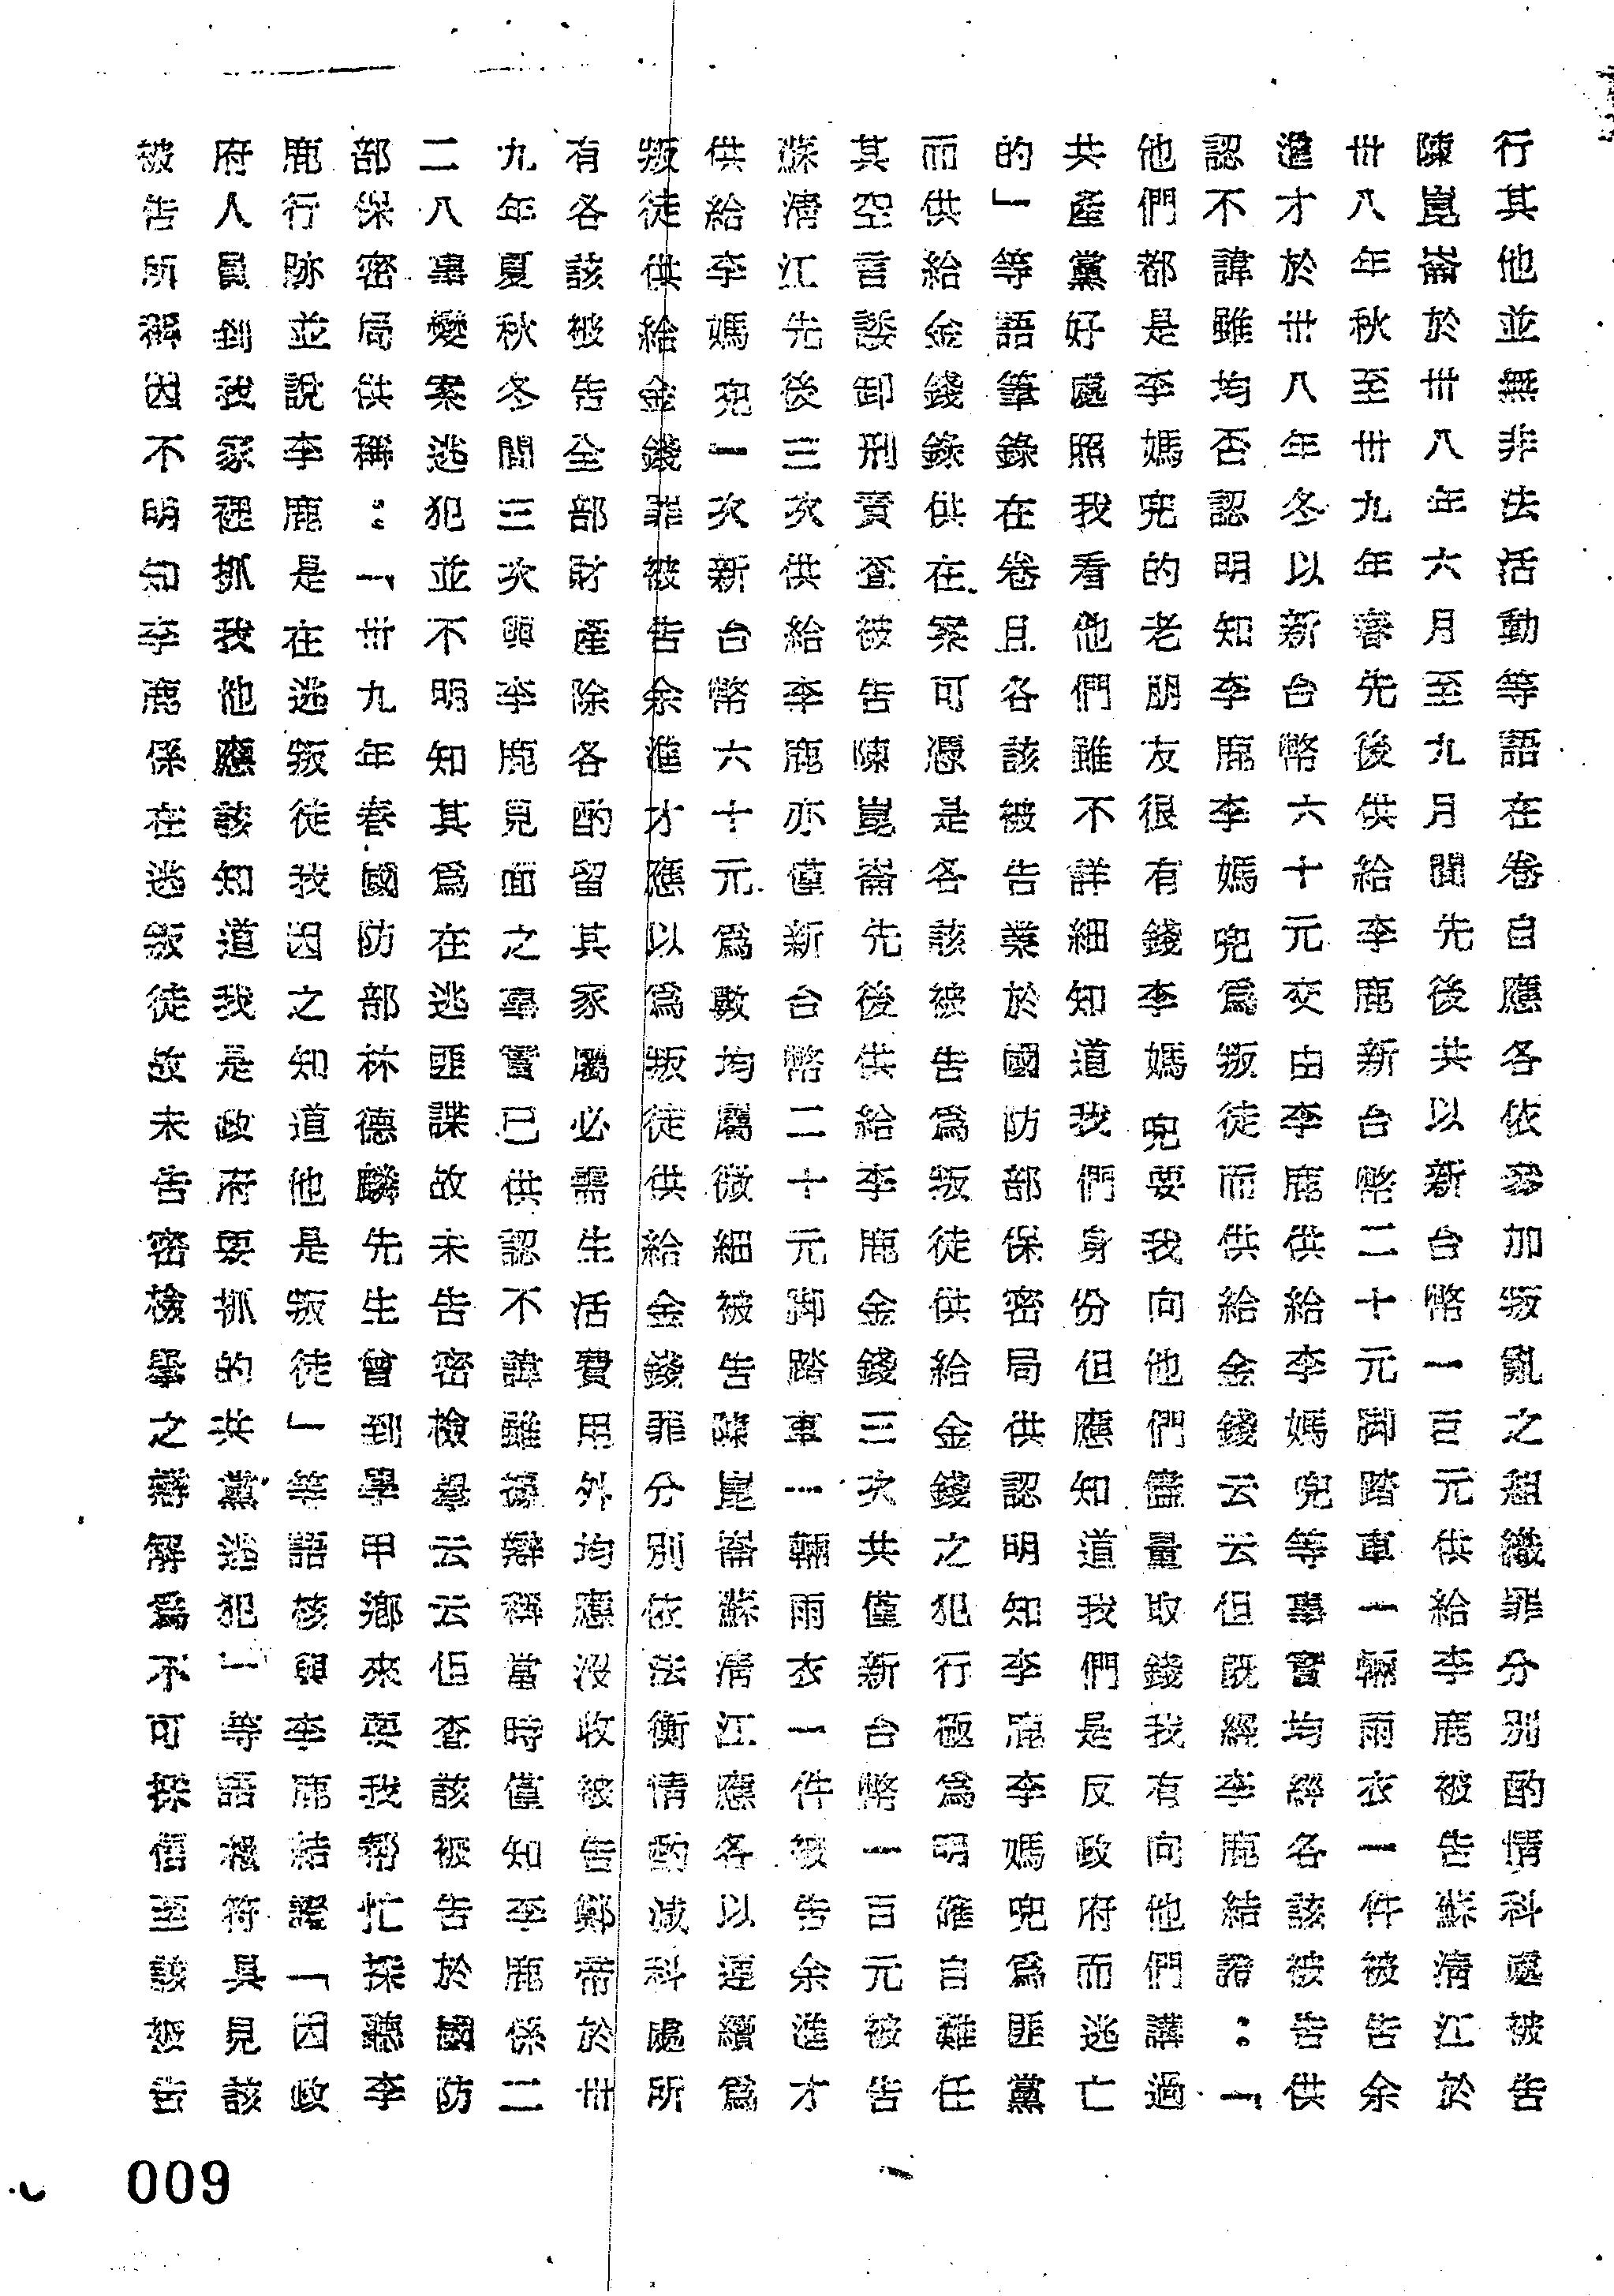 行其他並無非法活動等語在卷自應各依參加叛亂之組織罪分別酌情科處被告
陳崑崙於卅八年六月至九月間先後共以新台幣一百元供給李鹿被告蘇清江於
卅八年秋至卅九年春先後供給李鹿新台幣二十元脚踏車一輛雨衣一件被告余
進才於卅八年冬以新台幣六十元交由李鹿供給李媽兜等事實均經各該被告供
認不諱雖均否認明知李鹿李媽兜為叛徒而供給金錢云云但既經李鹿結證：「
他們都是李媽兜的老朋友很有錢李媽兜要我向他們儘量取錢我有向他們講過
共產黨好處照我看他們雖不詳細知道我們身份但應知道我們是反政府而逃亡
的」等語筆錄在卷且各該被告業於國防部保密局供認明知李鹿李媽兜為匪黨
而供給金錢錄供在案可憑是各該被告為叛徒供給金錢之犯行極為明確自難任
其空言諉卸刑責查被告陳崑崙先後供給李鹿金錢三次共僅新台幣一百元被告
蘇清江先後三次供給李鹿亦僅新台幣二十元脚踏車一輛雨衣一件被告余進才
供給李媽兜一次新台幣六十元為數均屬微細被告陳崑崙蘇清江應各以連續為
叛徒供給金錢罪被告余進才應以為叛徒供給金錢罪分別依法衡情酌減科處所
有各該被告全部財產除各酌留其家屬必需生活費用外均應沒收被告鄭帝於卅
九年夏秋冬間三次與李鹿見面之事實已供認不諱雖據辯稱當時僅知李鹿係二
二八事變案逃犯並不明知其為在逃匪諜故未告密檢舉云云但查該被告於國防
部保密局供稱：「卅九年春國防部林德麟先生曾到學甲鄉來要我幫忙探聽李
鹿行跡並說李鹿是在逃叛徒我因之知道他是叛徒」等語核與李鹿結證「因政
府人員到我家裡抓我他應該知道我是政府要抓的共黨逃犯」等語相符具見該
被告所稱因不明知李鹿係在逃叛徒故未告密檢舉之辯解為不可採信至該被告
009